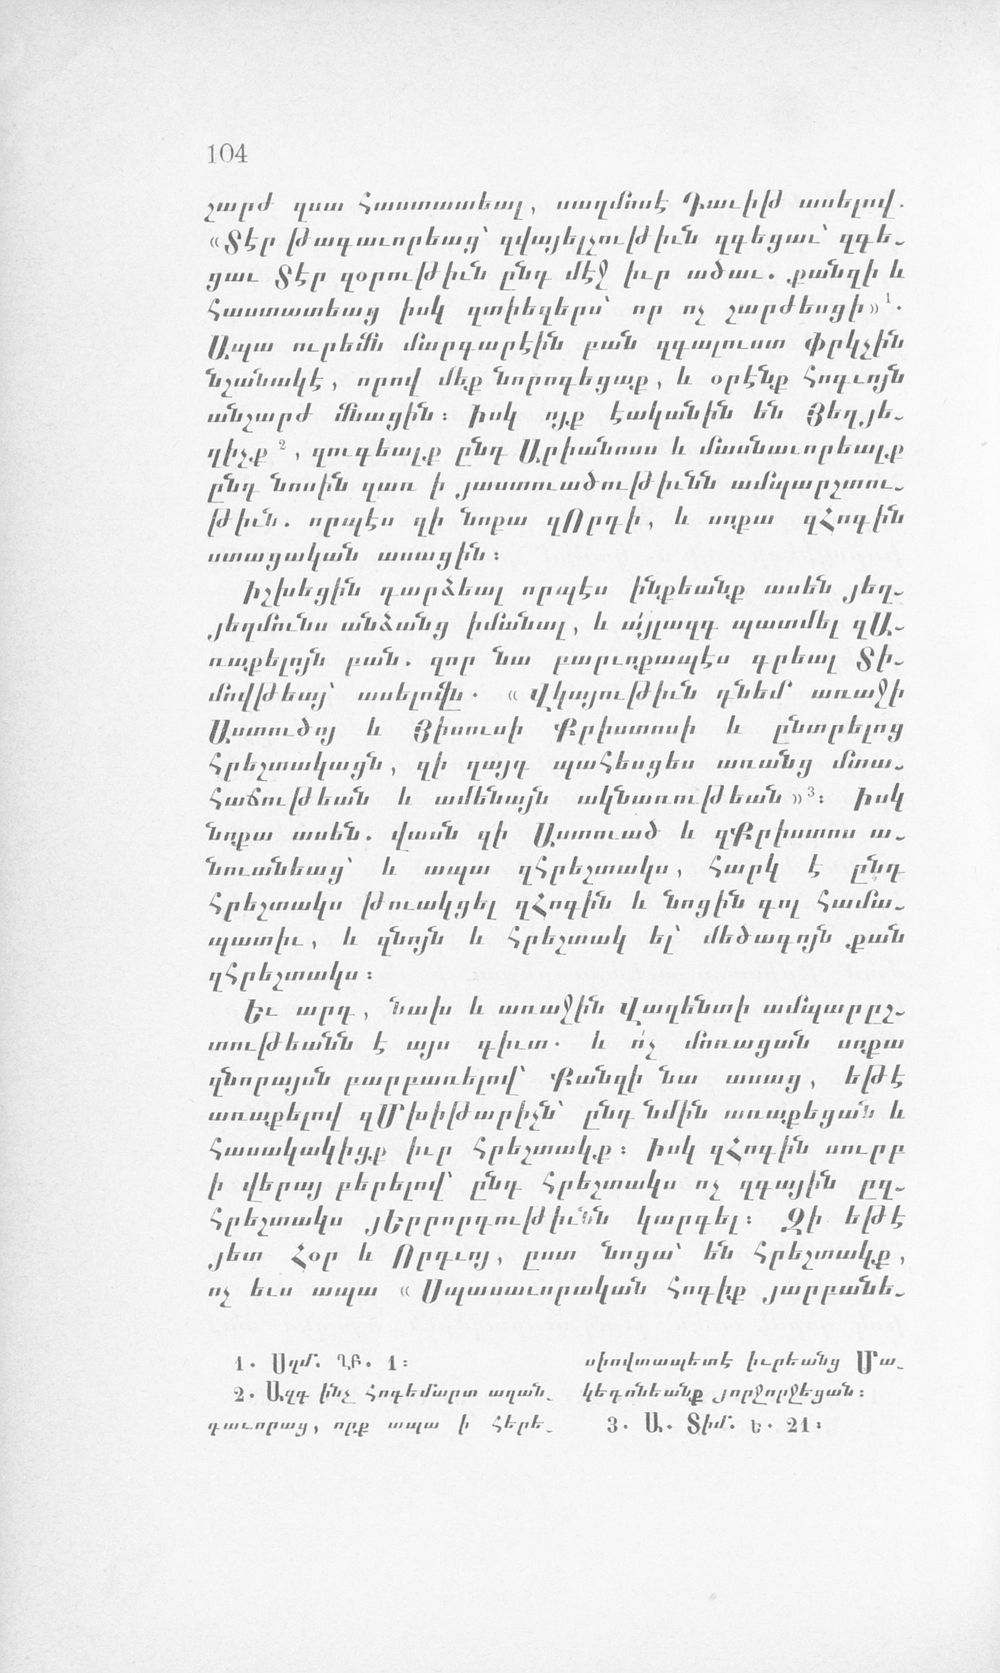 104
շարժ զսա հաստատեալ, սաղմոսէ Դաւիթ ասելով.
«Տէր թագաւորեաց՝ զվայելչութիւն զգեցաւ՝ զգե֊
ցաւ Տէր զօրութիւն ընդ մէջ իւր ածաւ. քանզի և
հաստատեաց իսկ զտիեզերս՝ որ ոչ շարժեսցի»¹.
Ապա ուրեմն մարգարէին բան զգալուստ Փրկչին
նշանակէ, որով մեք նորոգեցաք, և օրէնք հոգւոյն
անշարժ մնացին: Իսկ ոյք էականին են Յեղյե֊
ղիչք², զուգեալք ընդ Արիանոսս և մասնաւորեալք
ընդ նոսին զառ ի յաստուածութիւնն ամպարշտու֊
թիւն. որպէս զի նոքա զՈրդի, և սոքա զՀոգին
ստացական ասացին:
Իշխեցին դարձեալ որպէս ինքեանք ասեն յեղ֊
յեղմունս անձանց իմանալ, և այլազգ պատմել զԱ֊
ռաքելոյն բան. զոր նա բարւոքապէս գրեալ Տի֊
մովթեայ՝ ասելովն. «Վկայութիւն դնեմ առաջի
Աստուծոյ և Յիսուսի Քրիստոսի և ընտրելոց
հրեշտակացն, զի զայդ պահեսցես առանց մոռա֊
հաճութեան և ամենայն ակնառութեան»³: Իսկ
նոքա ասեն. վասն զի Աստուած և զՔրիստոս ա֊
նուանեաց՝ և ապա զհրեշտակս, հարկ է ընդ
հրեշտակս թուակցել զՀոգին և նոցին գոլ համա֊
պատիւ, և զնոյն և հրեշտակ ել՝ մեծագոյն քան
զհրեշտակս:
Եւ արդ, նախ և առաջին Վաղենտի ամպարըշ֊
տութեանն է այս գիւտ. և ո՛չ մոռացան սոքա
զնորայսն բարբառելով՝ Քանզի նա ասաց, եթէ
առաքելով զՄխիթարիչն՝ ընդ նմին առաքեցան և
հասակակիցք իւր հրեշտակք: Իսկ զՀոգին սուրբ
ի վերայ բերելով՝ ընդ հրեշտակս ոչ զգային ըզ֊
հրեշտակս յԵրրորդութիւնն կարգել: Զի եթէ
յետ Հօր և Որդւոյ, ըստ նոցա՝ են հրեշտակք,
ոչ ևս ապա «Սպասաւորական հոգիք յարբանե֊
1. Սղմ. ՂԲ. 1:
2. Ազգ ինչ հոգեմարտ աղան֊
դաւորաց, որք ապա ի հերե֊
սիովտապետէ իւրեանց Մա֊
կեդոնեանք յորջորջեցան:
3. Ա. Տիմ. Ե. 21: